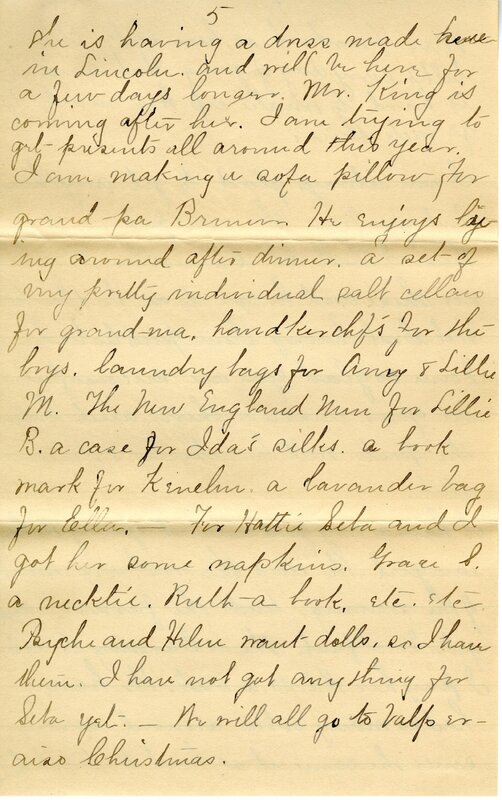 5
She is having a dress made here
in Lincoln. and will be here for
a few days longer. Mr. King is
coming after her. I am trying to
get presents all around this year.
I am making a sofa pillow for
grand-pa He enjoys lay
ing around after dinner. a set of
very pretty individual salt cellars
for grand-ma, handkerchf's for the
boys. laundry bags for Amy & Lillie
M. The New England Nun for Lillie
B. a case for Ida's silks. a book
mark for Kenelm. a lavander bag
for Ella. — For Hattie Seta and I
got her some napkins. Grace S.
a necktie. Ruth a book, etc. etc
Psyche and Helen want dolls, so I have
them. I have not got anything for
Seta yet. — We will all go to Valpar-
aiso Christmas.